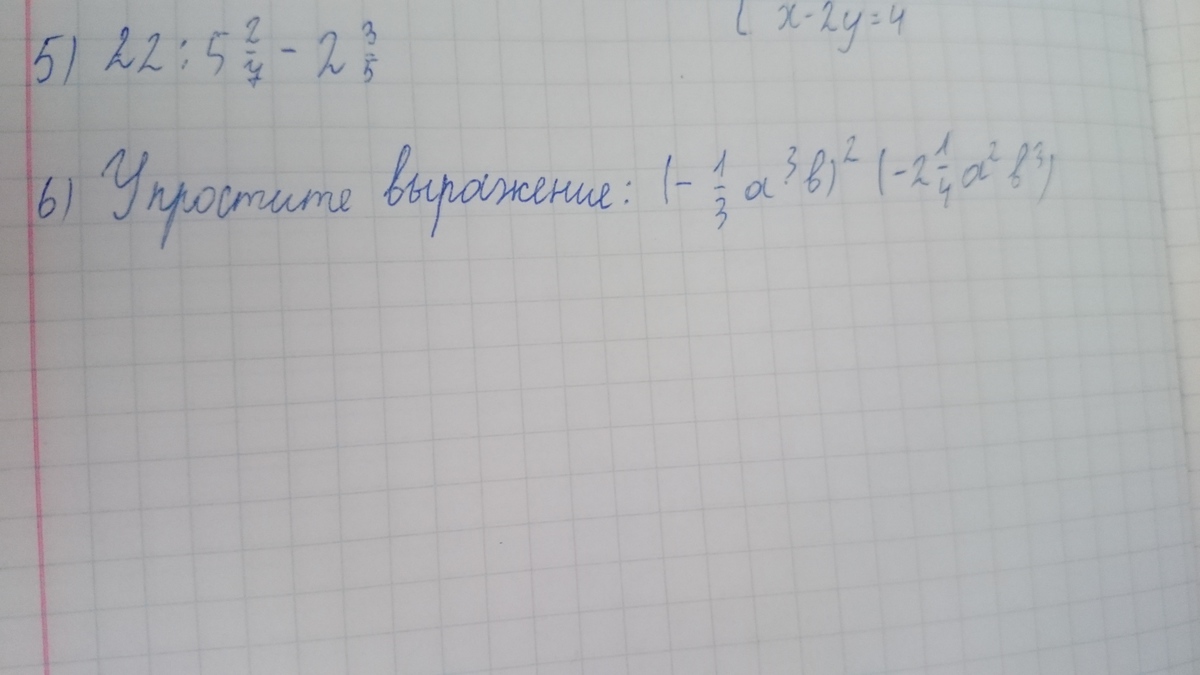 { x-2y=4
5) 22 : 5 2/7 - 2 3/5
6) Упростите выражение: (- 1/3 a³b)² (-2 1/4 a² b³)